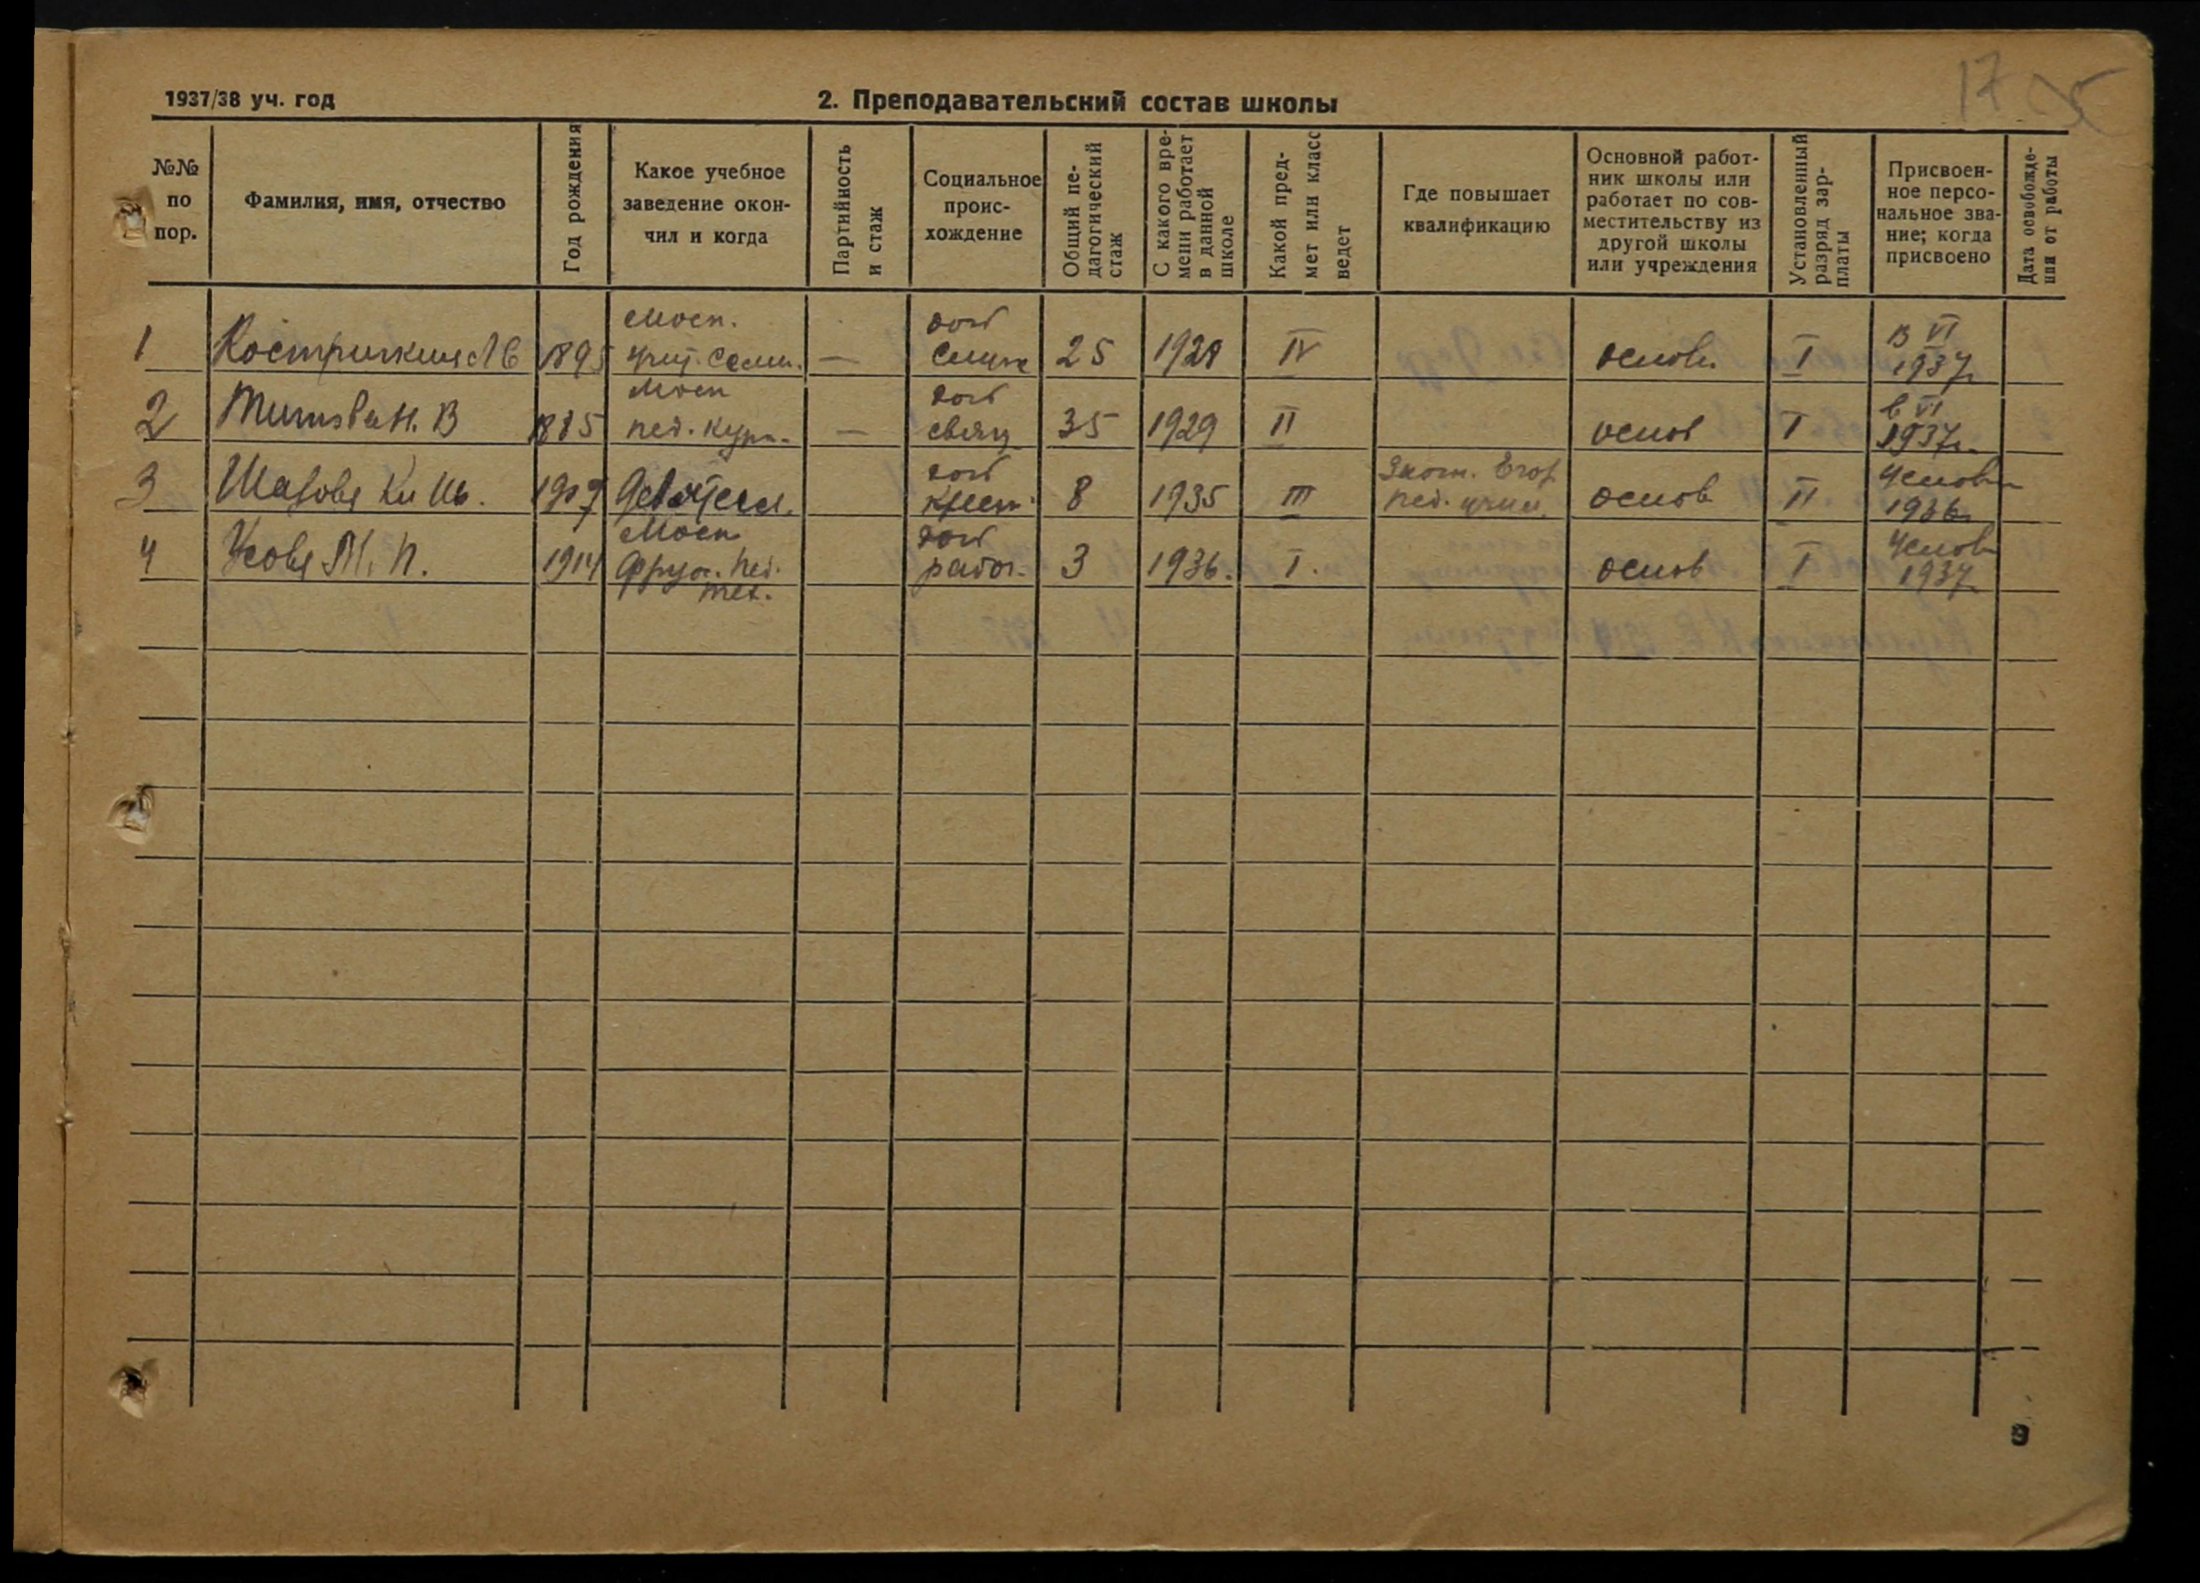 17
1937/38 уч. год
2. Преподавательский состав школы
№№ по пор.
Фамилия, имя, отчество
Год рождения
Какое учебное заведение окон-чил и когда
Партийность и стаж
Социальное проис-хождение
Общий пе-дагогический стаж
С какого вре-мени работает в данной школе
Какой пред-мет или класс ведет
Где повышает квалификацию
Основной работ-ник школы или работает по сов-местительству из другой школы или учреждения
Установленный разряд зар-платы
Присвоен-ное персо-нальное зва-ние; когда присвоено
Дата освобожде-нии от работы
1 1895 Моск. учит. семин. — 25 IV основн. I в VI 1937г.
2 Титова Н. В 1885 Моск пед. курс. — 35 1929 II основ I в VI 1937г.
3 Ки Ив. 8 1935 III Заоч. Егор пед. учил. основ II 1936г.
4 Усова М. П. 1914 Моск пед. тех. рабоч. 3 1936. I. основ I 1937
9